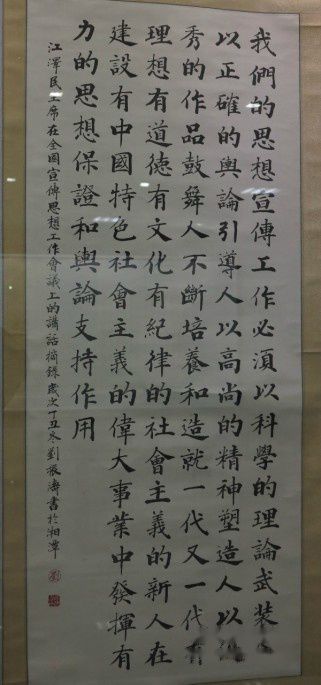 我們的思想宣傳工作必須以科學的理論武裝
以正確的輿論引導人以高尚的精神塑造人以
秀的作品鼓舞人不斷培養和造就一代又一代有
理想有道德有文化有紀律的社會主義的新人在
建設有中國特色社會主義的偉大事業中發揮有
力的思想保證和輿論支持作用
江澤民主席在全國宣傳思想工作會議上的講話摘錄歲次丁丑冬劉振濤書於湘潭